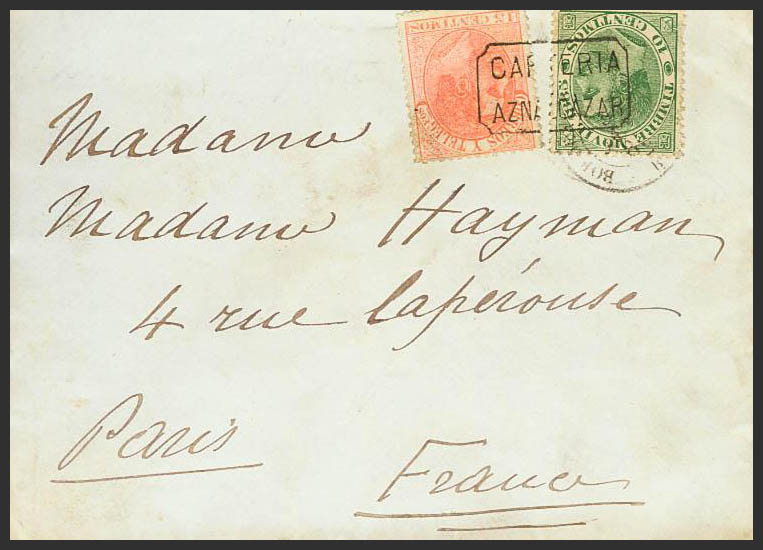 15 CENTIMOS
10 CENTIMOS
CARTERIA
AZNALCAZAR
CORREOS Y TELEGFOS
TIMBRE MOVIL
Madame
Madame Hayman,
4 rue Lapérouse
Paris
France